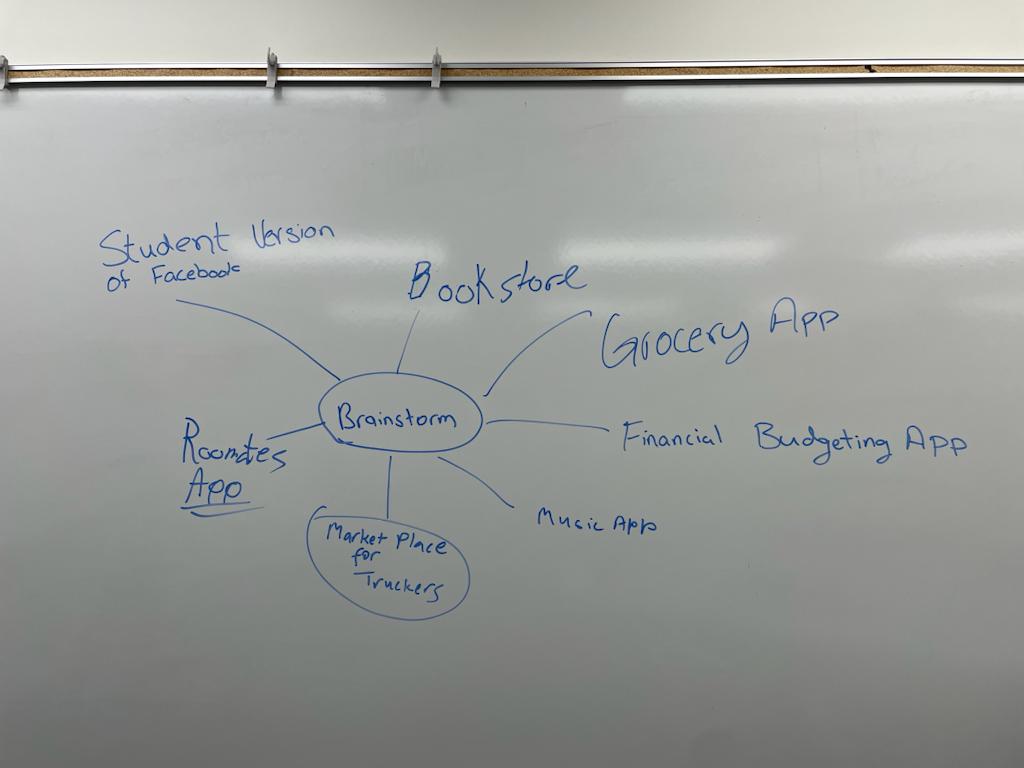 Student Version
of Facebook
Bookstore
Grocery App
Brainstorm
Financial Budgeting App
Roomates
App
Music App
Market Place
for
Truckers